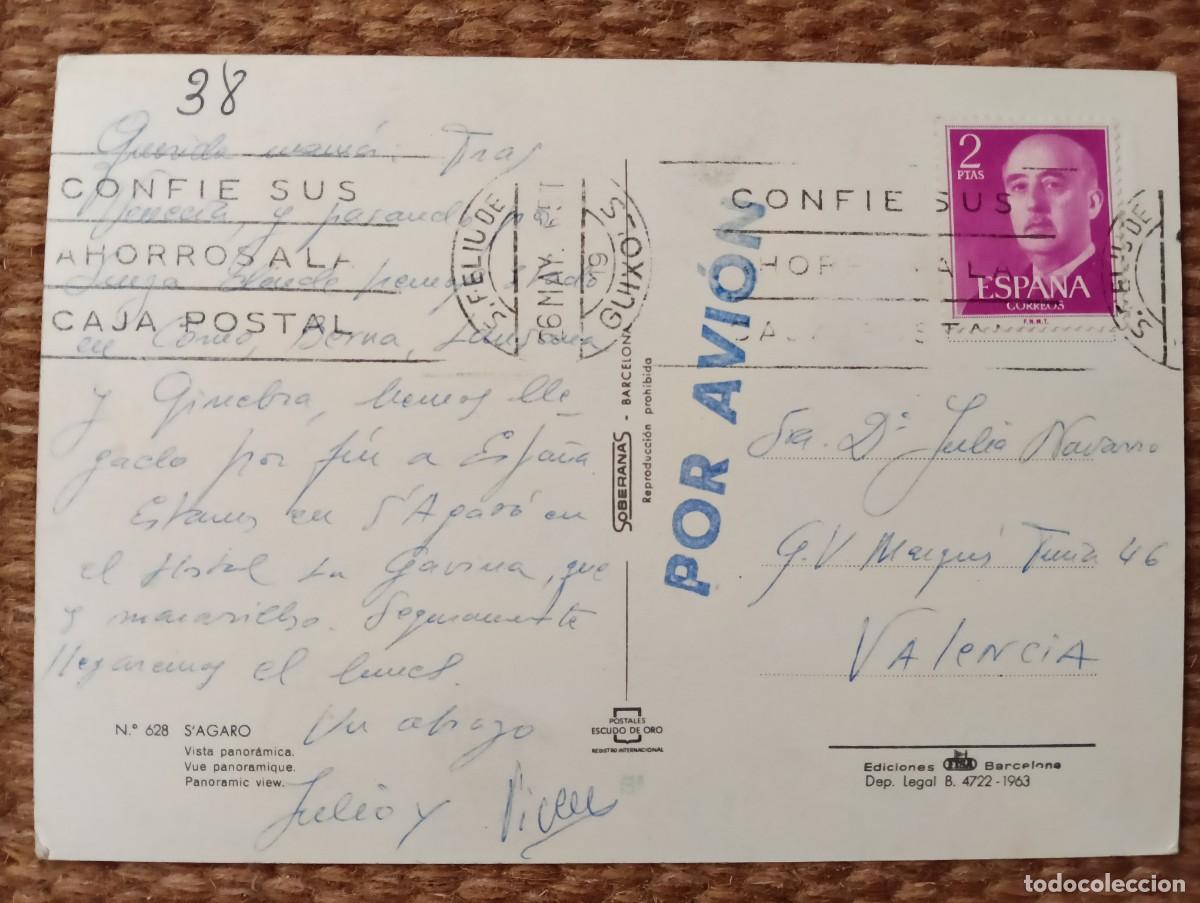 38
Querida mamá: Tras
Venecia, y pasando por
en Como, Berna, Lausana
y Ginebra, hemos lle-
gado por fín a España.
Estamos en S'Agaró en
el Hostal La Gavina, que
maravilloso. Seguramente
llegaremos el lunes.
Un abrazo
Julio y
CONFIE SUS
AHORROS A LA
CAJA POSTAL
S. FELIU DE
GUIXOLS
6 MAY.
19
N.º 628 S'AGARO
Vista panorámica.
Vue panoramique.
Panoramic view.
SOBERANAS - BARCELONA
Reproducción prohibida
POSTALES
ESCUDO DE ORO
REGISTRO INTERNACIONAL
POR AVIÓN
CONFIE SUS
2
PTAS
ESPAÑA
CORREOS
F.N.M.T.
S. FELIU DE
Sra. Dª Julia Navarro
G.V. Marqués Turia 46
VALENCIA
Ediciones FISA Barcelona
Dep. Legal B. 4722-1963
todocoleccion